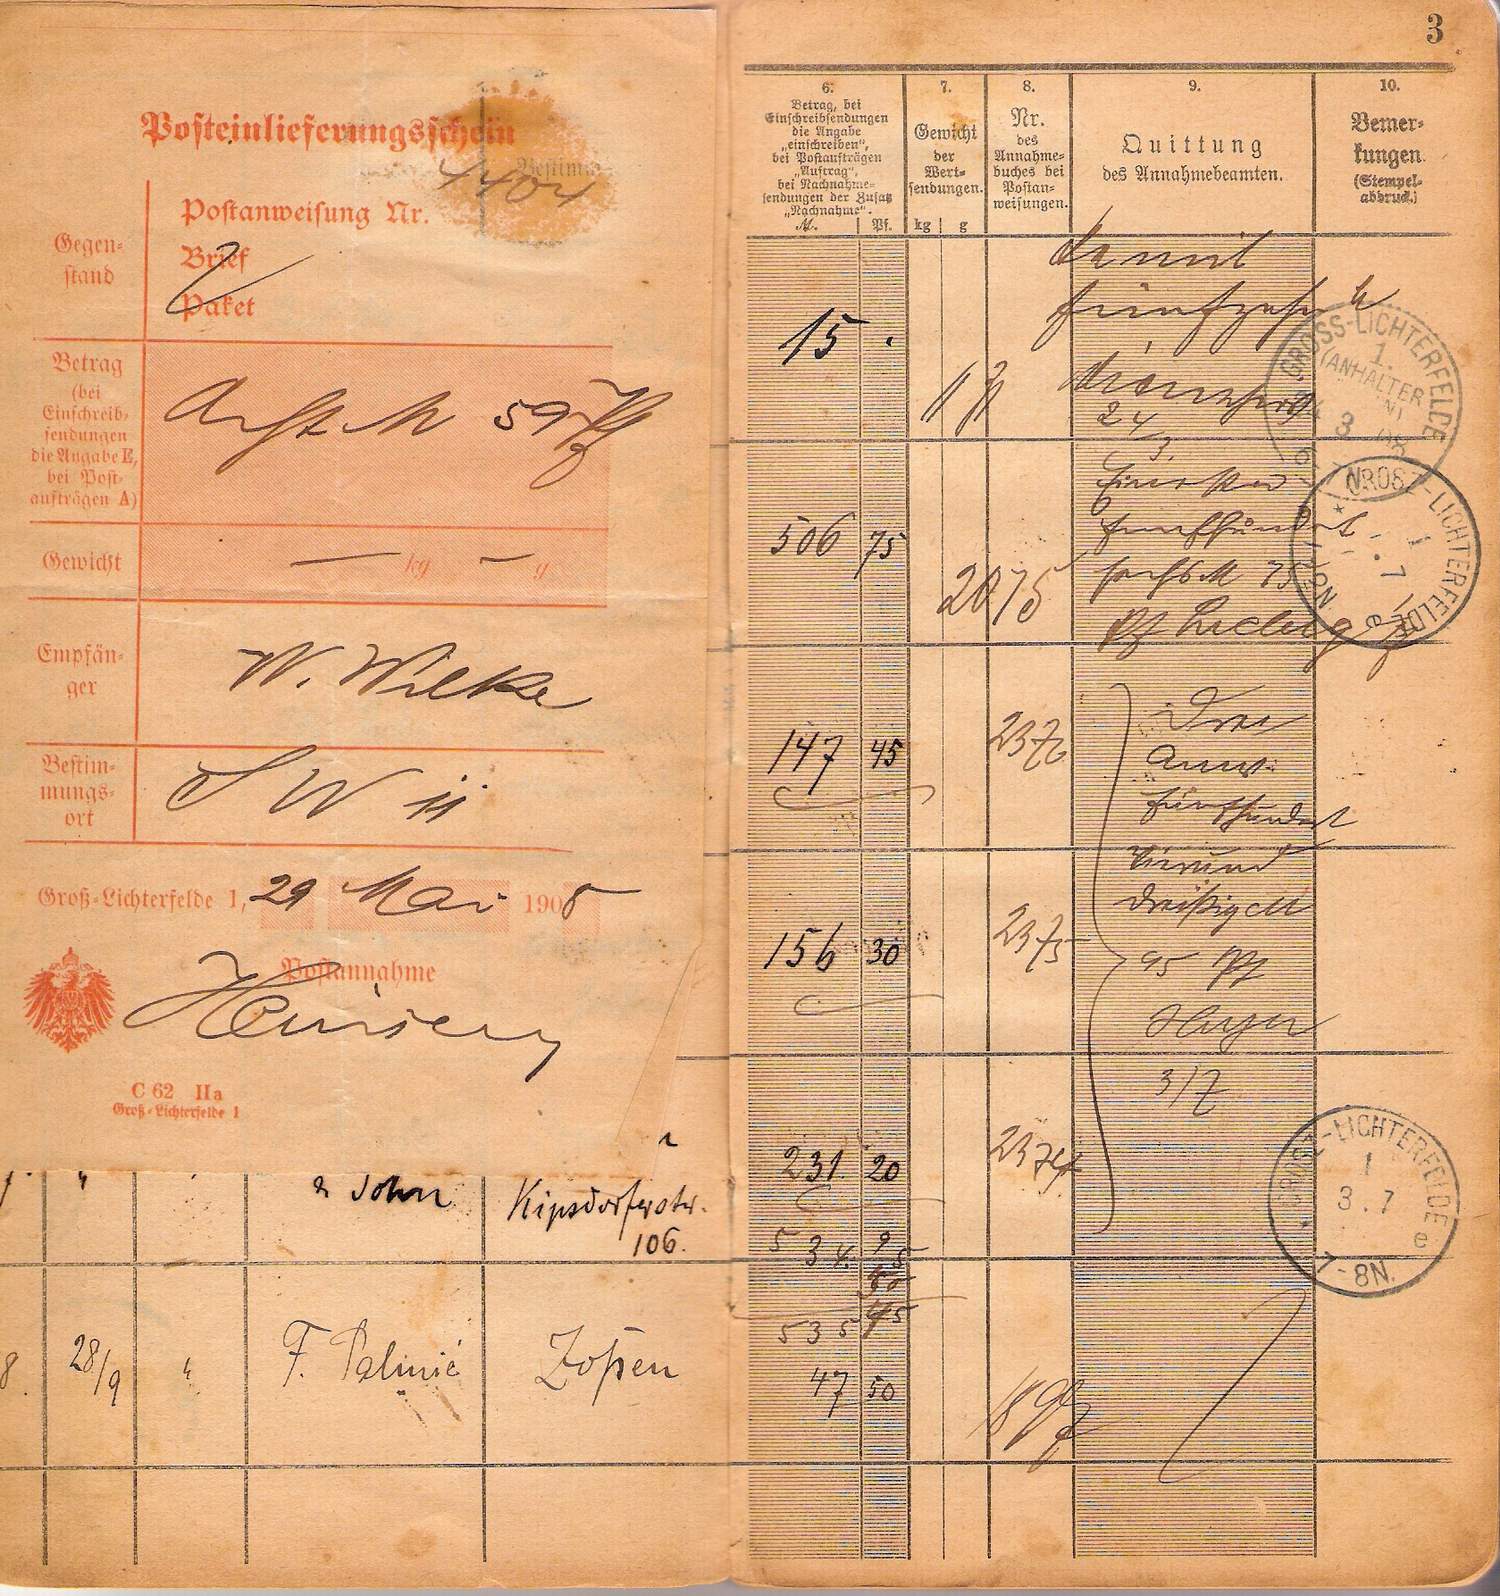 Posteinlieferungsschein
4404
Postanweisung Nr.
Gegen-
stand
Brief
Paket
Betrag
(bei
Einschreib-
sendungen
die Angabe E,
bei Post-
aufträgen A)
Acht M 59 Pf
Gewicht
— kg — g
Empfän-
ger
W. Wilke
Bestim-
mungs-
ort
SW 11
Groß-Lichterfelde 1, 29 Mai 1908
Postannahme
C 62 IIa
Groß-Lichterfelde 1
John
Kipsdorferstr.
106.
8.
28/9
"
F.
Zossen
3
6.
Betrag, bei
Einschreibsendungen
die Angabe
„einschreiben“,
bei Postaufträgen
„Auftrag“,
bei Nachnahme-
sendungen der Zusatz
„Nachnahme“.
M.
Pf.
7.
Gewicht
der
Wert-
sendungen.
kg
g
8.
Nr.
des
Annahme-
buches bei
Postan-
weisungen.
9.
Quittung
des Annahmebeamten.
10.
Bemer-
kungen.
(Stempel-
abdruck.)
15
fünfzehn M
24/3.
GROSS-LICHTERFELDE
1.
(ANHALTER
506 75
2075
fünfhundert
sechs M 75
Pf
GROSZ-LICHTERFELDE
1
147 45
2376
Drei
Anw.
fünfhundert
vierund
dreißig M
95 Pf
3/7
156 30
2375
231 20
534. 95
535 45
GROSZ-LICHTERFELDE
1
3.7
e
7-8N.
47 50